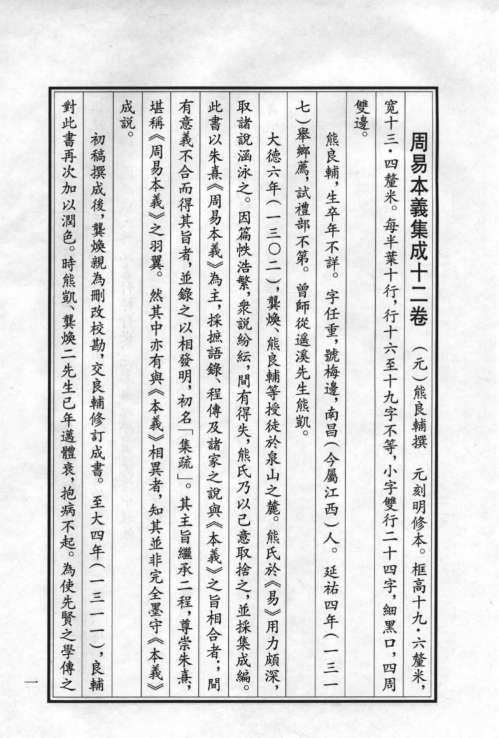 周易本義集成十二卷　（元）熊良輔撰　元刻明修本。框高十九·六釐米，
寬十三·四釐米。每半葉十行，行十六至十九字不等，小字雙行二十四字，細黑口，四周
雙邊。
熊良輔，生卒年不詳。字任重，號梅邊，南昌（今屬江西）人。延祐四年（一三一
七）舉鄉薦，試禮部不第。曾師從遥溪先生熊凱。
大德六年（一三〇二），龔焕、熊良輔等授徒於泉山之麓。熊氏於《易》用力頗深，
取諸說涵泳之。因篇帙浩繁，衆説紛紜，間有得失，熊氏乃以己意取捨之，並採集成編。
此書以朱熹《周易本義》為主，採摭語錄、程傳及諸家之說與《本義》之旨相合者；間
有意義不合而得其旨者，並錄之以相發明，初名「集疏」。其主旨繼承二程，尊崇朱熹，
堪稱《周易本義》之羽翼。然其中亦有與《本義》相異者，知其並非完全墨守《本義》
成説。
初稿撰成後，龔焕親為刪改校勘，交良輔修訂成書。至大四年（一三一一），良輔
對此書再次加以潤色。時熊凱、龔焕二先生已年邁體衰，抱病不起。為使先賢之學傳之
一